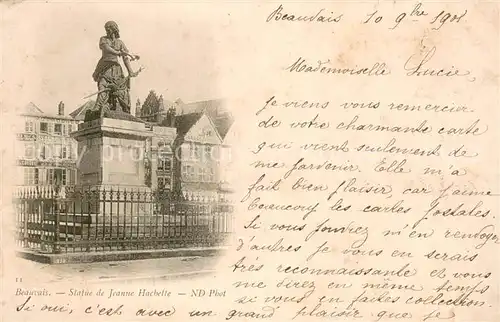 Beauvais 10 9bre 1901
Mademoiselle Lucie,
Je viens vous remercier
de votre charmante carte
qui vient seulement de
me parvenir. Elle m'a
fait bien plaisir, car j'aime
beaucoup les cartes postales.
Si vous pouviez m'en renvoyer
d'autres je vous en serais
très reconnaissante et vous
me direz en même temps
si vous en faites collection.
11
Beauvais. — Statue de Jeanne Hachette — ND Phot
Si oui, c'est avec un grand plaisir que je